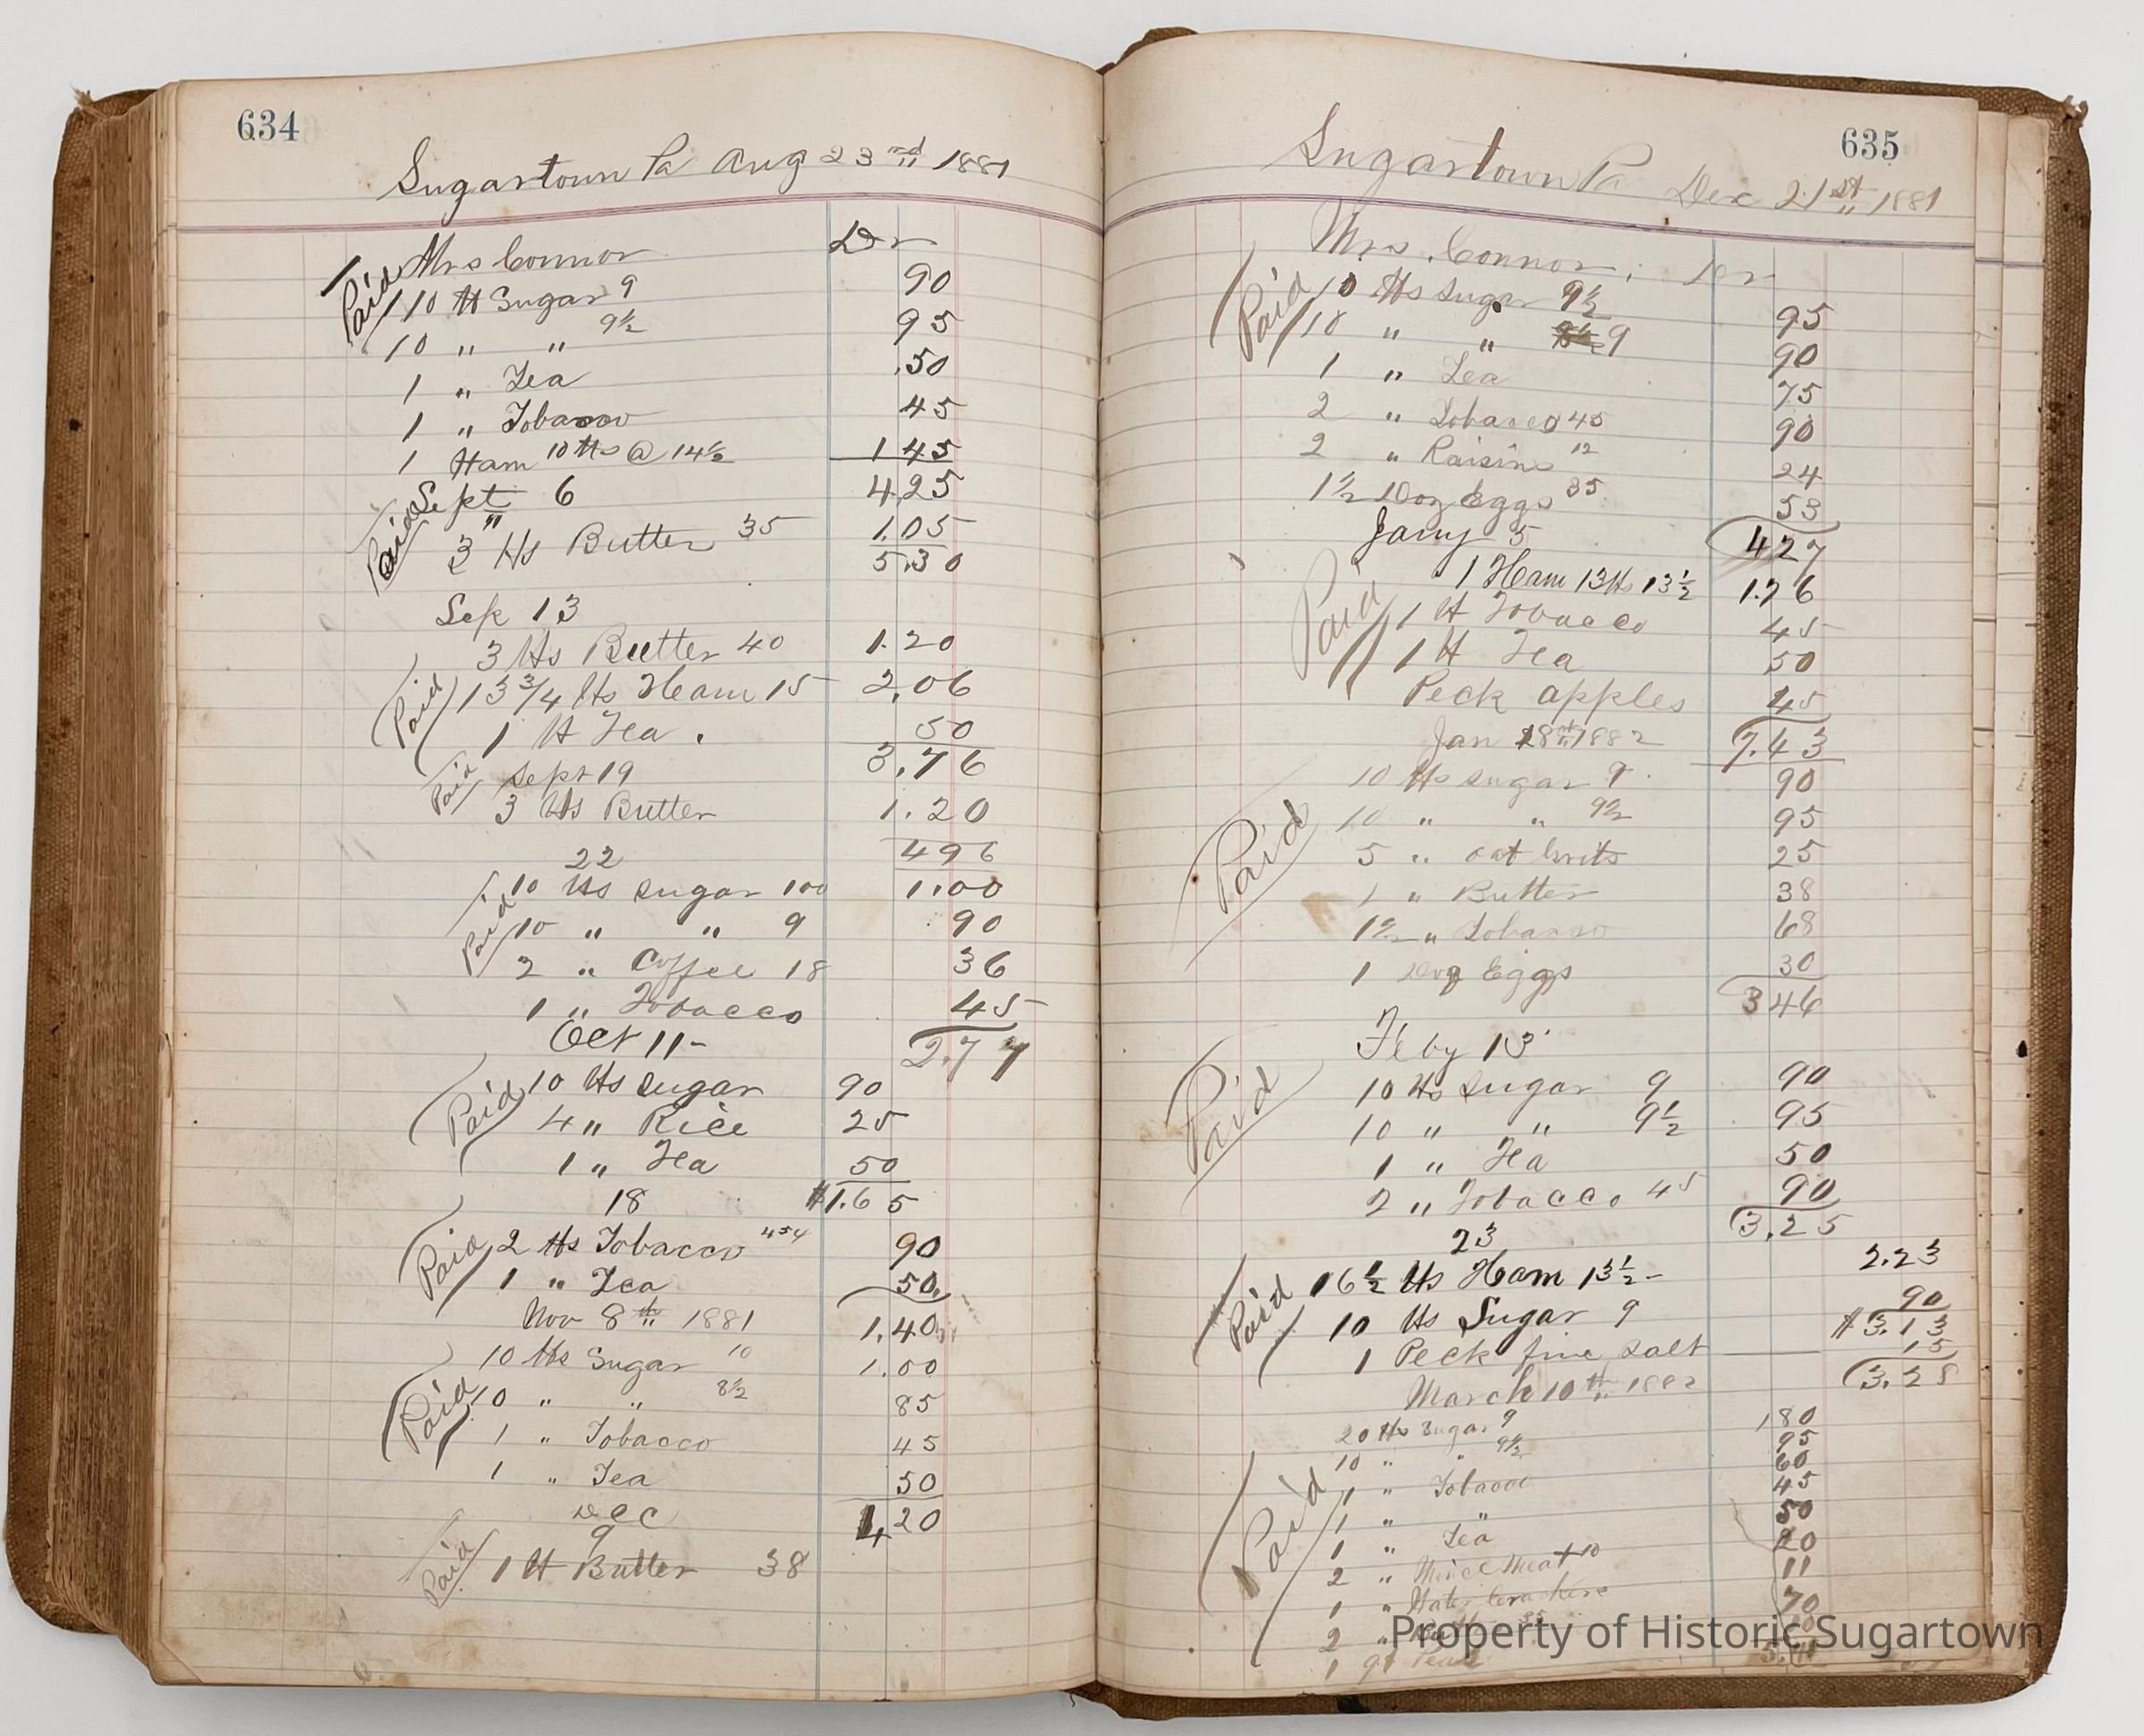 634
Sugartown Pa Aug 23rd 1881
Mrs Connor Dr
Paid
10 lb Sugar 9 90
10 " " 9½ 95
1 " Tea .50
1 " Tobacco 45
1 Ham 10 lbs @ 14½ 1 45
4.25
Sept 6
Paid
3 lbs Butter 35 1.05
5.30
Sep 13
3 lbs Butter 40 1.20
Paid
13 3/4 lbs Ham 15 2.06
1 lb Tea . 50
3.76
Paid
Sept 19
3 lbs Butter 1.20
4 96
22
Paid
10 lbs Sugar 100 1.00
10 " " 9 90
2 " Coffee 18 36
1 " Tobacco 45
Oct 11 - 2.77
Paid
10 lbs Sugar 90
4 " Rice 25
1 " Tea 50
18 $1.65
Paid
2 lbs Tobacco 90
1 " Tea 50
Nov 8th 1881 1.40
10 lbs Sugar 10 1.00
Paid
10 " " 8½ 85
1 " Tobacco 45
1 " Tea 50
Dec 20
9
Paid
1 lb Butter 38
635
Sugartown Pa Dec 21st 1881
Mrs. Connor Dr
Paid
10 lbs Sugar 9½ 95
10 " " 9 90
1 " Tea 75
2 " Tobacco 45 90
2 " Raisins 12 24
1½ Doz Eggs 35 53
Jany 5 4 27
1 Ham 13 lbs 13½ 1.76
Paid
1 lb Tobacco 45
1 lb Tea 50
Peck apples 45
Jan 18th 1882 7.43
10 lbs Sugar 9 90
10 " " 9½ 95
Paid
5 " oat Grits 25
1 " Butter 38
1½ " Tobacco 68
1 Doz Eggs 30
3 46
Feby 13
Paid
10 lbs Sugar 9 90
10 " " 9½ 95
1 " Tea 50
2 " Tobacco 45 90
23 3.25
Paid
16½ lbs Ham 13½ 2.23
10 lbs Sugar 9 90
$3.13
1 Peck fine Salt 15
3.28
March 10th 1882
20 lbs Sugar 9 1 80
10 " " 9½ 95
60
Paid
1 " Tobacco 45
1 " " 50
1 " Tea 20
2 " Mince Meat 10 11
1 " Water Crackers 70
2 "
1
Property of Historic Sugartown